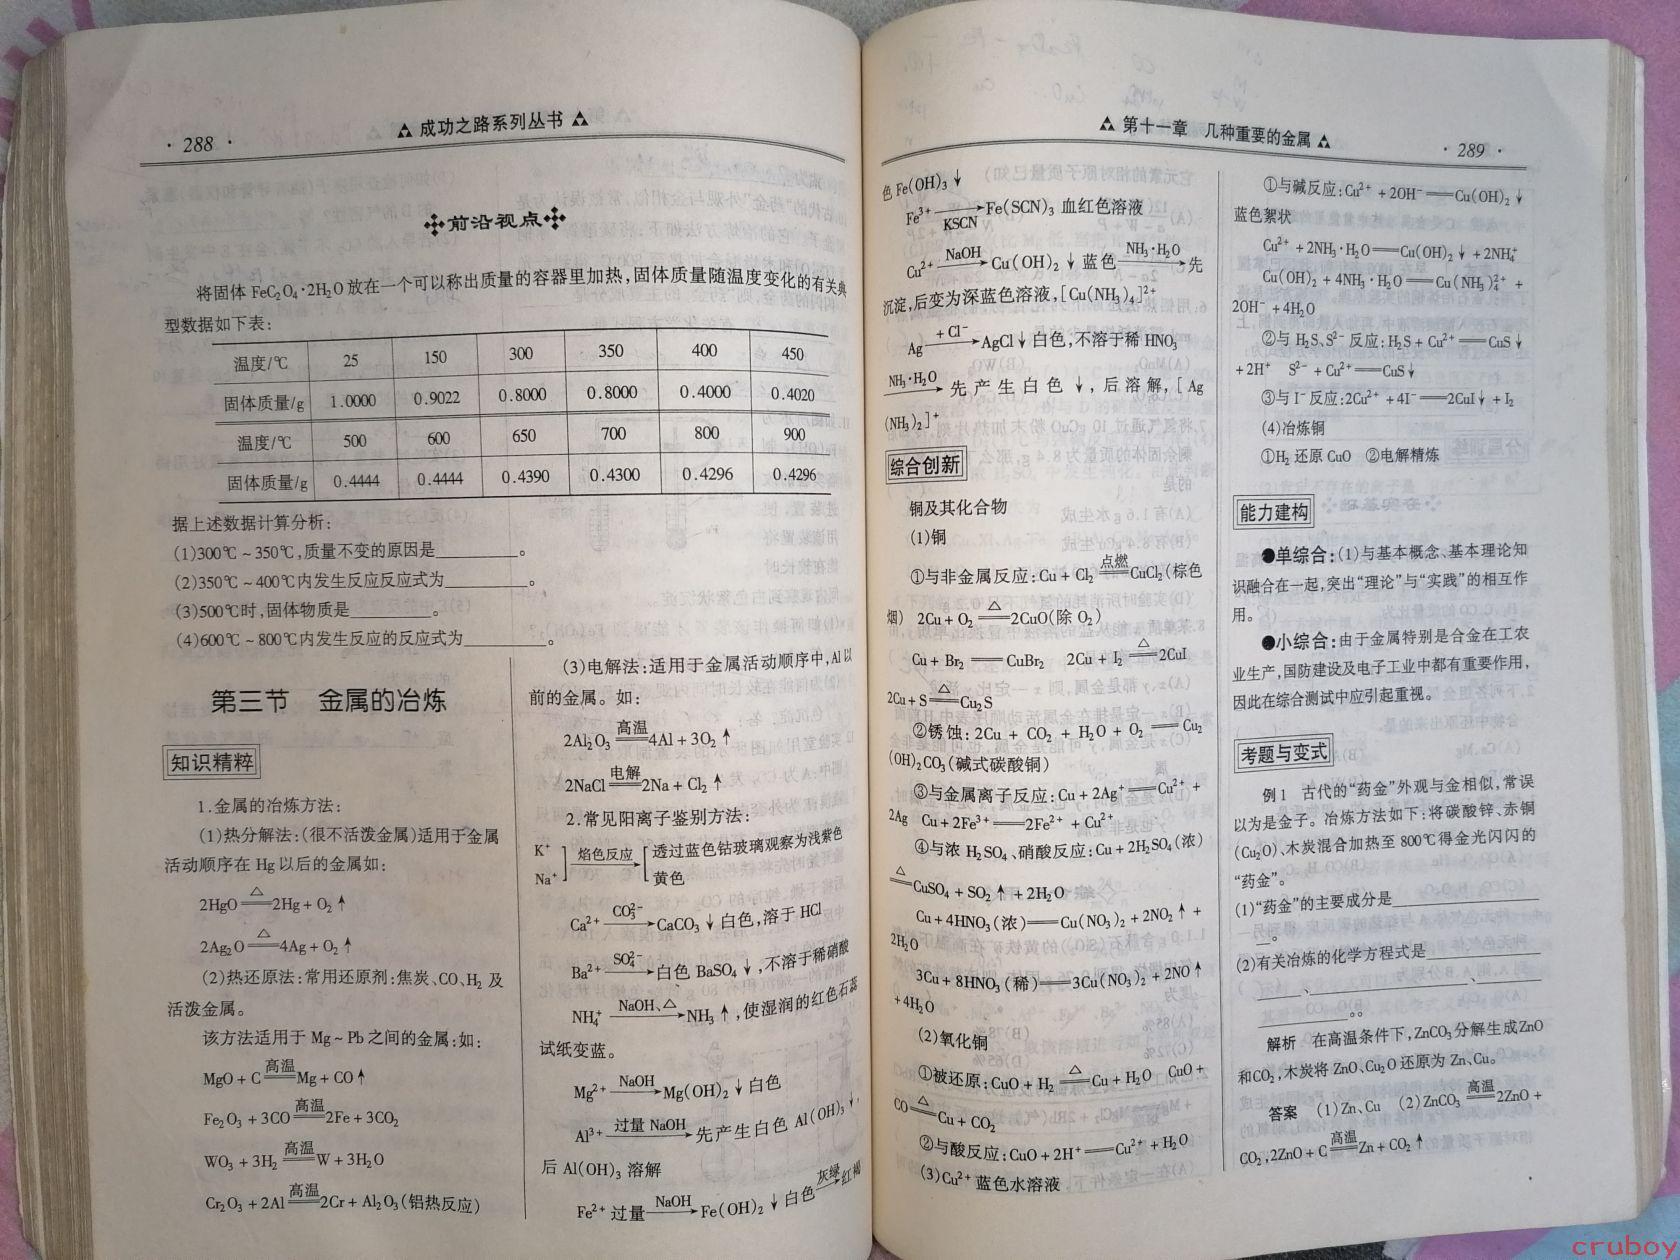 · 288 ·
成功之路系列丛书
前沿视点
将固体 FeC₂O₄·2H₂O 放在一个可以称出质量的容器里加热,固体质量随温度变化的有关典
型数据如下表:
温度/℃ 25 150 300 350 400 450
固体质量/g 1.0000 0.9022 0.8000 0.8000 0.4000 0.4020
温度/℃ 500 600 650 700 800 900
固体质量/g 0.4444 0.4444 0.4390 0.4300 0.4296 0.4296
据上述数据计算分析:
(1)300℃~350℃,质量不变的原因是________。
(2)350℃~400℃内发生反应反应式为________。
(3)500℃时,固体物质是________。
(4)600℃~800℃内发生反应的反应式为________。
第三节 金属的冶炼
知识精粹
1.金属的冶炼方法:
(1)热分解法:(很不活泼金属)适用于金属
活动顺序在 Hg 以后的金属如:
2HgO ══△══ 2Hg + O₂↑
2Ag₂O ══△══ 4Ag + O₂↑
(2)热还原法:常用还原剂:焦炭、CO、H₂ 及
活泼金属。
该方法适用于 Mg~Pb 之间的金属;如:
MgO + C ══高温══ Mg + CO↑
Fe₂O₃ + 3CO ══高温══ 2Fe + 3CO₂
WO₃ + 3H₂ ══高温══ W + 3H₂O
Cr₂O₃ + 2Al ══高温══ 2Cr + Al₂O₃(铝热反应)
(3)电解法:适用于金属活动顺序中,Al 以
前的金属。如:
2Al₂O₃ ══高温══ 4Al + 3O₂↑
2NaCl ══电解══ 2Na + Cl₂↑
2.常见阳离子鉴别方法:
K⁺ 焰色反应→ 透过蓝色钴玻璃观察为浅紫色
Na⁺ 黄色
Ca²⁺ —CO₃²⁻→ CaCO₃↓白色,溶于 HCl
Ba²⁺ —SO₄²⁻→ 白色 BaSO₄↓,不溶于稀硝酸
NH₄⁺ —NaOH、△→ NH₃↑,使湿润的红色石蕊
试纸变蓝。
Mg²⁺ —NaOH→ Mg(OH)₂↓白色
Al³⁺ —过量 NaOH→ 先产生白色 Al(OH)₃↓,
后 Al(OH)₃ 溶解
Fe²⁺ 过量 —NaOH→ Fe(OH)₂↓白色 —灰绿→ 红褐
第十一章 几种重要的金属
· 289 ·
色 Fe(OH)₃↓
Fe³⁺ —KSCN→ Fe(SCN)₃ 血红色溶液
Cu²⁺ —NaOH→ Cu(OH)₂↓蓝色 —NH₃·H₂O→ 先
沉淀,后变为深蓝色溶液,[Cu(NH₃)₄]²⁺
Ag —+Cl⁻→ AgCl↓白色,不溶于稀 HNO₃
—NH₃·H₂O→ 先产生白色↓,后溶解,[Ag
(NH₃)₂]⁺
综合创新
铜及其化合物
(1)铜
①与非金属反应:Cu + Cl₂ ══点燃══ CuCl₂(棕色
烟) 2Cu + O₂ ══△══ 2CuO(除 O₂)
Cu + Br₂ ══ CuBr₂ 2Cu + I₂ ══△══ 2CuI
2Cu + S ══△══ Cu₂S
②锈蚀:2Cu + CO₂ + H₂O + O₂ ══ Cu₂
(OH)₂CO₃(碱式碳酸铜)
③与金属离子反应:Cu + 2Ag⁺ ══ Cu²⁺ +
2Ag Cu + 2Fe³⁺ ══ 2Fe²⁺ + Cu²⁺
④与浓 H₂SO₄、硝酸反应:Cu + 2H₂SO₄(浓)
══△══ CuSO₄ + SO₂↑ + 2H₂O
Cu + 4HNO₃(浓) ══ Cu(NO₃)₂ + 2NO₂↑ +
2H₂O
3Cu + 8HNO₃(稀) ══ 3Cu(NO₃)₂ + 2NO↑
+ 4H₂O
(2)氧化铜
①被还原:CuO + H₂ ══△══ Cu + H₂O CuO +
CO ══△══ Cu + CO₂
②与酸反应:CuO + 2H⁺ ══ Cu²⁺ + H₂O
(3)Cu²⁺ 蓝色水溶液
①与碱反应:Cu²⁺ + 2OH⁻ ══ Cu(OH)₂↓
蓝色絮状
Cu²⁺ + 2NH₃·H₂O ══ Cu(OH)₂↓ + 2NH₄⁺
Cu(OH)₂ + 4NH₃·H₂O ══ Cu(NH₃)₄²⁺ +
2OH⁻ + 4H₂O
②与 H₂S、S²⁻ 反应:H₂S + Cu²⁺ ══ CuS↓
+ 2H⁺ S²⁻ + Cu²⁺ ══ CuS↓
③与 I⁻ 反应:2Cu²⁺ + 4I⁻ ══ 2CuI↓ + I₂
(4)冶炼铜
①H₂ 还原 CuO ②电解精炼
能力建构
●单综合:(1)与基本概念、基本理论知
识融合在一起,突出“理论”与“实践”的相互作
用。
●小综合:由于金属特别是合金在工农
业生产,国防建设及电子工业中都有重要作用,
因此在综合测试中应引起重视。
考题与变式
例 1 古代的“药金”外观与金相似,常误
以为是金子。冶炼方法如下:将碳酸锌、赤铜
(Cu₂O)、木炭混合加热至 800℃得金光闪闪的
“药金”。
(1)“药金”的主要成分是________
__。
(2)有关冶炼的化学方程式是________
____、________、____
________。。
解析 在高温条件下,ZnCO₃分解生成ZnO
和CO₂,木炭将 ZnO、Cu₂O 还原为 Zn、Cu。
答案 (1)Zn、Cu (2)ZnCO₃ ══高温══ 2ZnO +
CO₂,2ZnO + C ══高温══ Zn + CO₂↑
cruboy